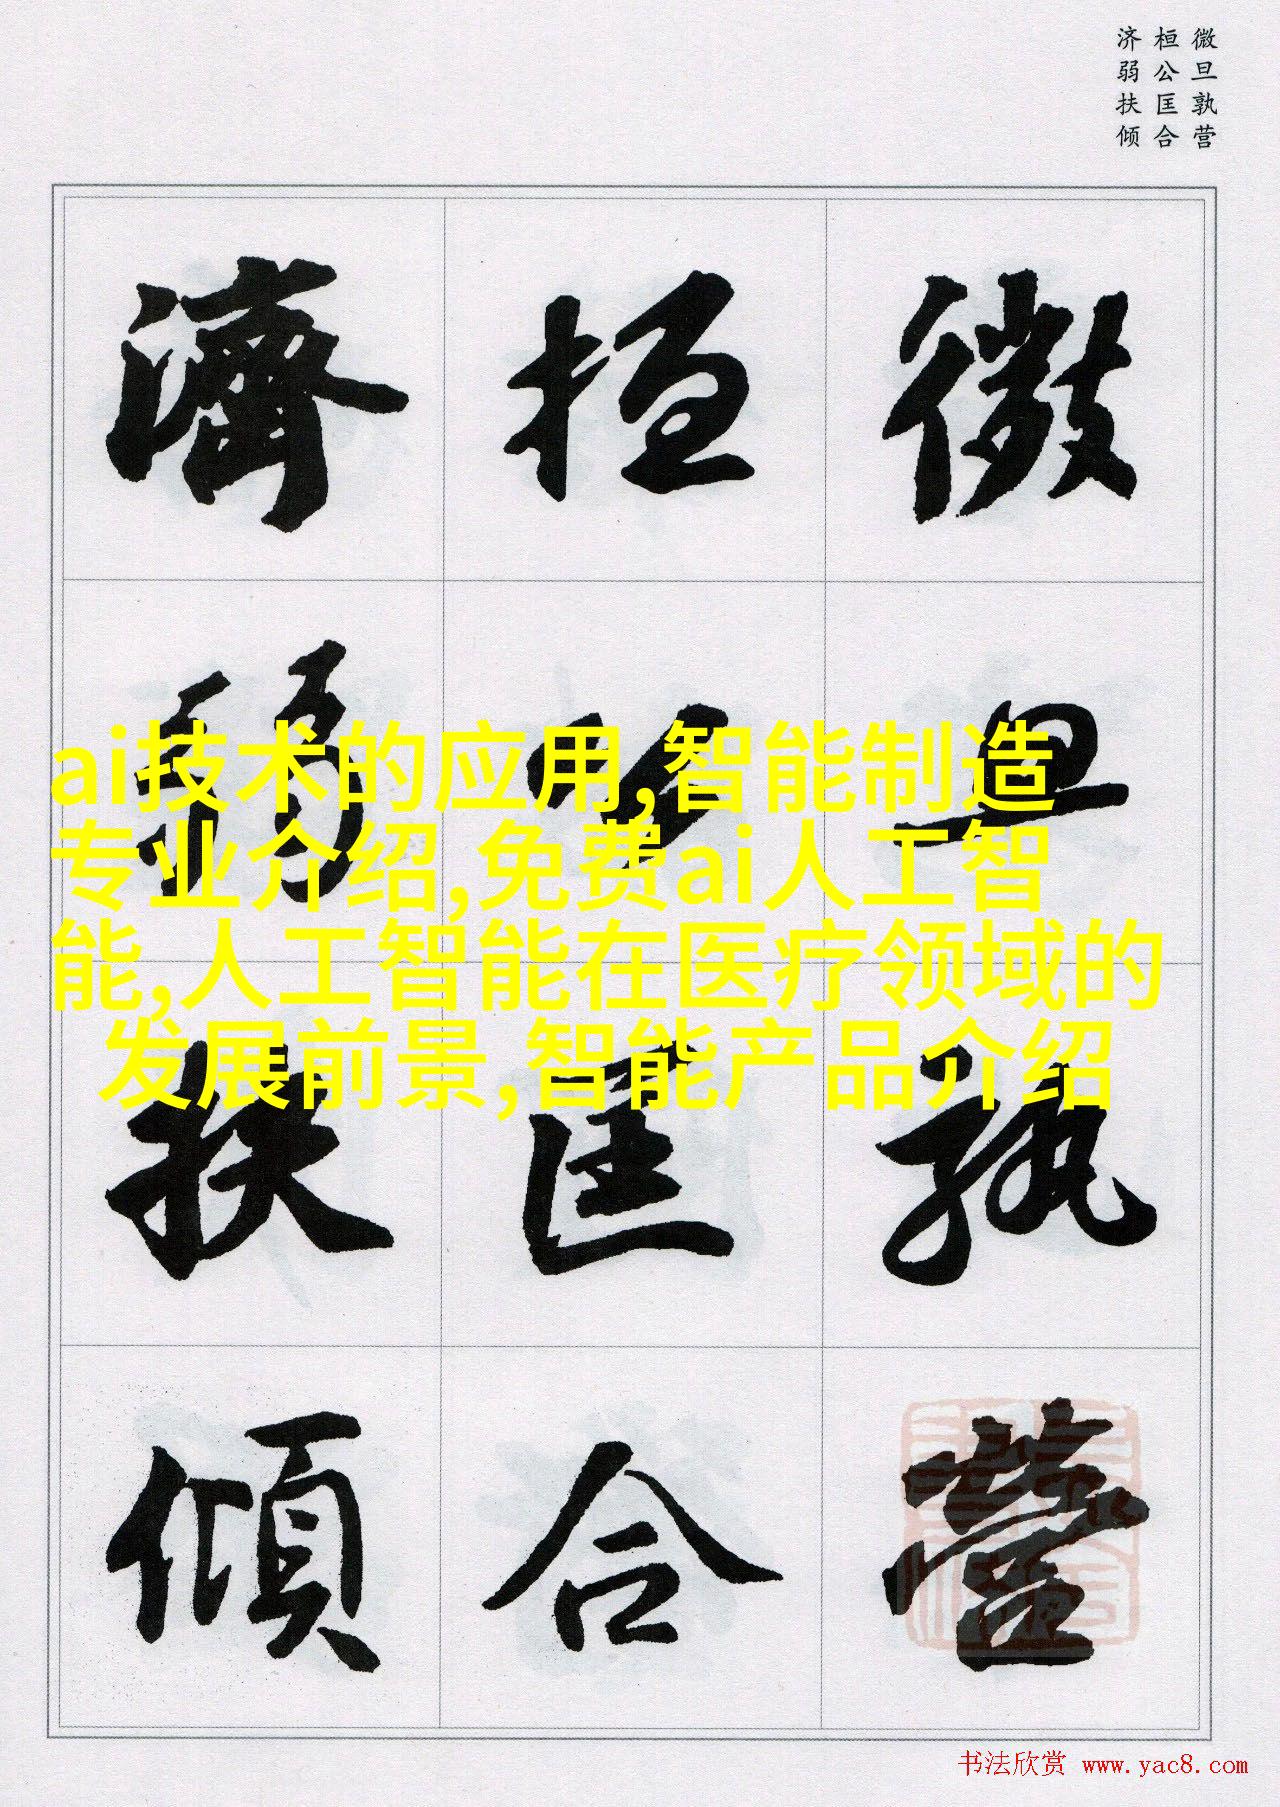 微旦孰营
桓公匡合
济弱扶倾
微旦孰營
桓公匡合
濟弱扶傾
ai技术的应用,智能制造
专业介绍,免费ai人工智
能,人工智能在医疗领域的
发展前景,智能产品介绍
书法欣赏 www.yac8.com